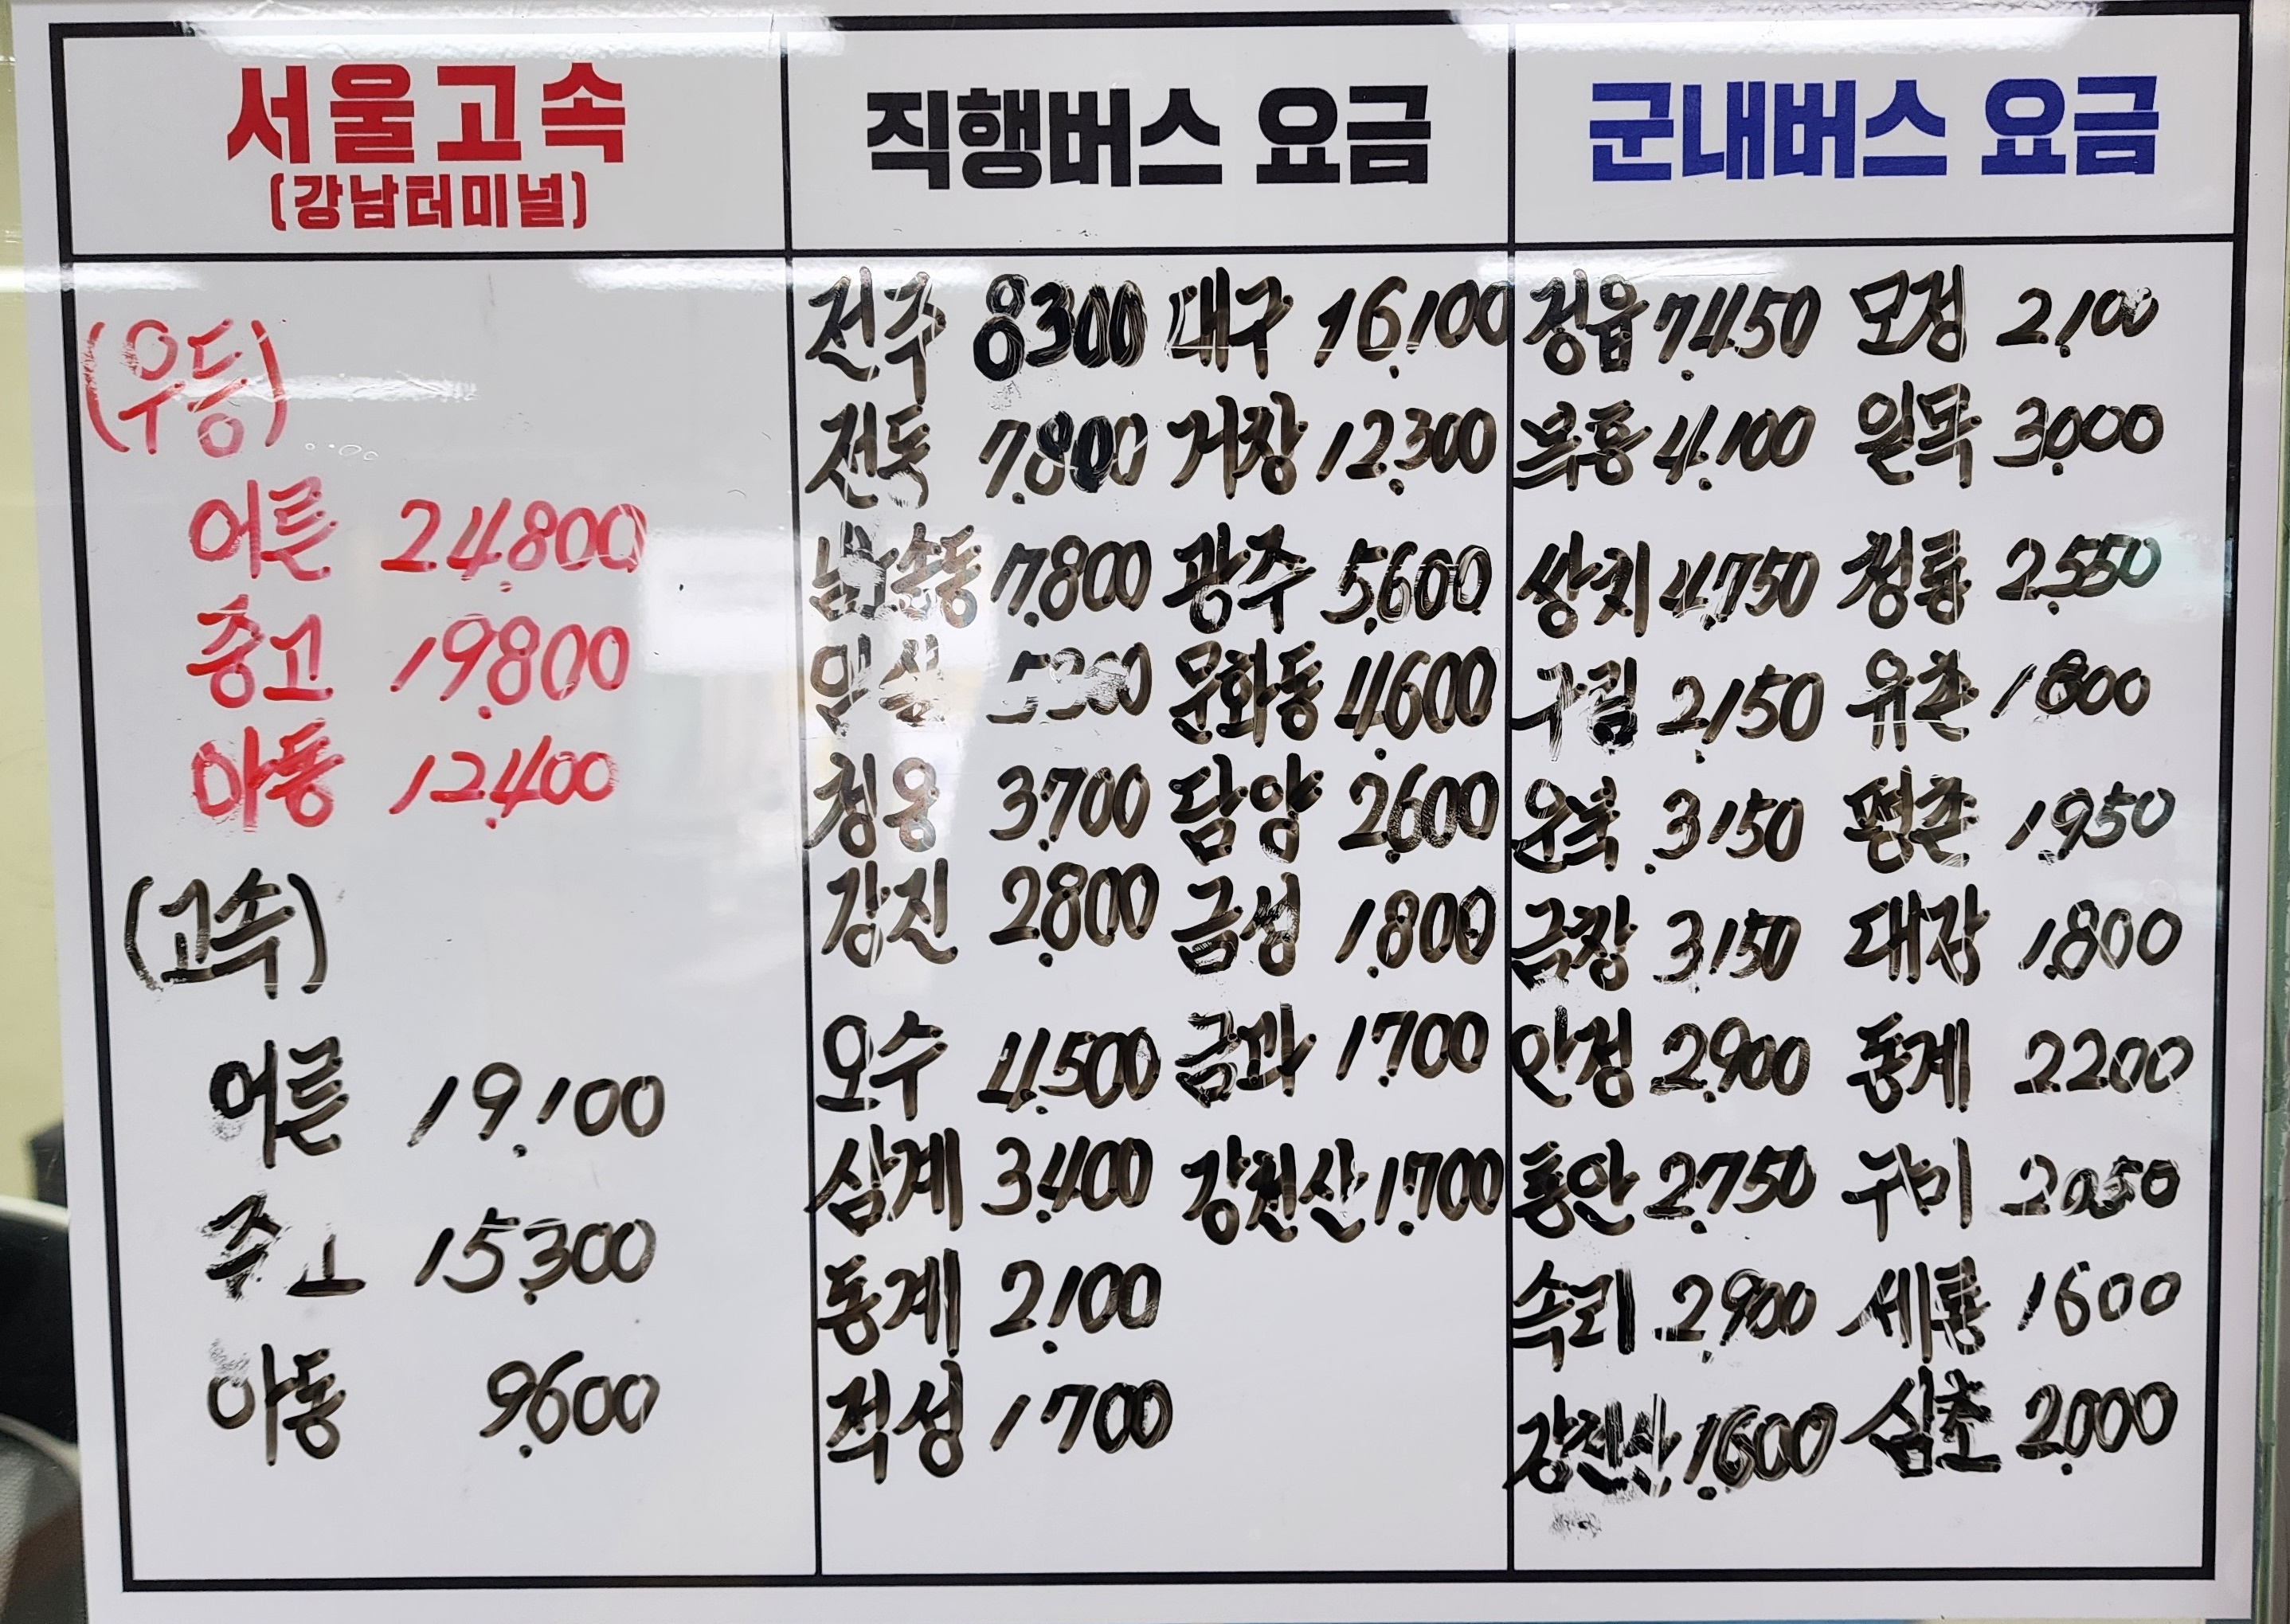 서울고속
(강남터미널)
(우등)
어른 24,800
중고 19,800
아동 12,400
(고속)
어른 19,100
중고 15,300
아동 9,600
직행버스 요금
전주 8300 대구 16,100
전동 7,800 거창 12,300
남손동 7,800 광주 5,600
임실 5300 문화동 4,600
청웅 3,700 담양 2,600
강진 2,800 금성 1,800
오수 4,500 금과 1,700
삼계 3,400 강천산 1,700
동계 2,100
적성 1700
군내버스 요금
정읍 7,450 모정 2,100
복흥 4,100 일목 3,000
쌍치 4,750 청룡 2,550
구림 2,150 유촌 1800
운북 3,150 평촌 1,950
금창 3,150 대장 1,800
안정 2,900 동계 2,200
통안 2,750 구미 2,050
속리 2,900 세룡 1600
강천산 1,600 심초 2,000